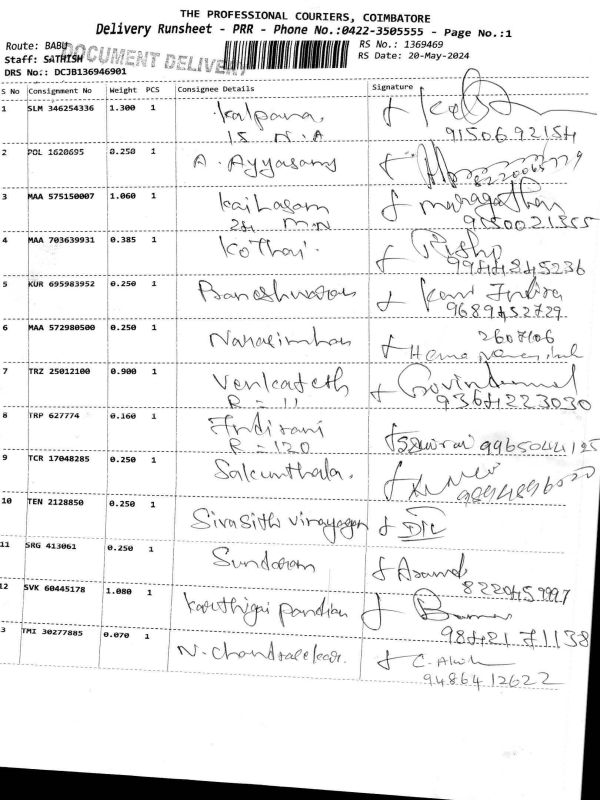 THE PROFESSIONAL COURIERS, COIMBATORE
Delivery Runsheet - PRR - Phone No.:0422-3505555 - Page No.:1
Route: BABU
RS No.: 1369469
DOCUMENT DELIVERY
Staff: SATHISH
RS Date: 20-May-2024
DRS No.: DCJB136946901
S No Consignment No Weight PCS Consignee Details Signature
1 SLM 346254336 1.300 1 Kalpana
15 N.A 9150692154
2 POL 1620695 0.250 1 A. Ayyasamy
3 MAA 575150007 1.060 1 Kailasam maragatham
M.N 9150021355
4 MAA 703639931 0.385 1 Kothai
9944845236
5 KUR 695983952 0.250 1
9689452729
6 MAA 572980500 0.250 1 Narasimhan
7 TRZ 25012100 0.900 1 Venkatesh Govindammal
R = 11 9364223030
8 TRP 627774 0.160 1 Indirani
R = 120 9965044125
9 TCR 17048285 0.250 1 Sakunthala.
10 TEN 2128850 0.250 1
11 SRG 413061 0.250 1 Sundaram Anand
12 SVK 60445178 1.080 1 Karthigai Pandian
9842171138
3 TMI 30277885 0.070 1 N. Chandrasekar.
9486412622